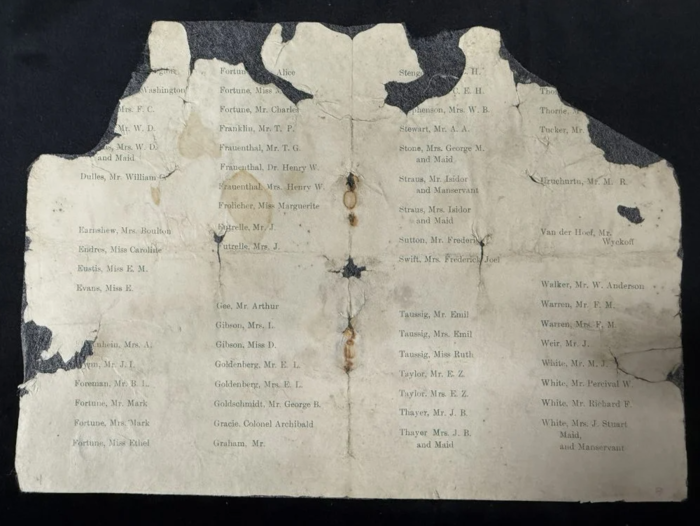 Washington
Mrs. F. C.
Mr. W. D.
Mrs. W. D.
and Maid
Dulles, Mr. William
Earnshew, Mrs. Boulton
Endres, Miss Caroline
Eustis, Miss E. M.
Evans, Miss E.
Mrs. A.
Mr. J. I.
Foreman, Mr. B. L.
Fortune, Mr. Mark
Fortune, Mrs. Mark
Fortune, Miss Ethel
Alice
Fortune, Miss
Fortune, Mr. Charles
Franklin, Mr. T. P.
Frauenthal, Mr. T. G.
Frauenthal, Dr. Henry W.
Frauenthal, Mrs. Henry W.
Frolicher, Miss Marguerite
Futrelle, Mr. J.
Futrelle, Mrs. J.
Gee, Mr. Arthur
Gibson, Mrs. L.
Gibson, Miss D.
Goldenberg, Mr. E. L.
Goldenberg, Mrs. E. L.
Goldschmidt, Mr. George B.
Gracie, Colonel Archibald
Graham, Mr.
H.
E. H.
Mrs. W. B.
Stewart, Mr. A. A.
Stone, Mrs. George M.
and Maid
Straus, Mr. Isidor
and Manservant
Straus, Mrs. Isidor
and Maid
Sutton, Mr. Frederick
Swift, Mrs. Frederick Joel
Taussig, Mr. Emil
Taussig, Mrs. Emil
Taussig, Miss Ruth
Taylor, Mr. E. Z.
Taylor, Mrs. E. Z.
Thayer, Mr. J. B.
Thayer Mrs. J. B.
and Maid
Tucker, Mr.
Uruchurtu, Mr. M. R.
Van der Hoef, Mr.
Wyckoff
Walker, Mr. W. Anderson
Warren, Mr. F. M.
Warren, Mrs. F. M.
Weir, Mr. J.
White, Mr. M. J.
White, Mr. Percival W.
White, Mr. Richard F.
White, Mrs. J. Stuart
Maid,
and Manservant